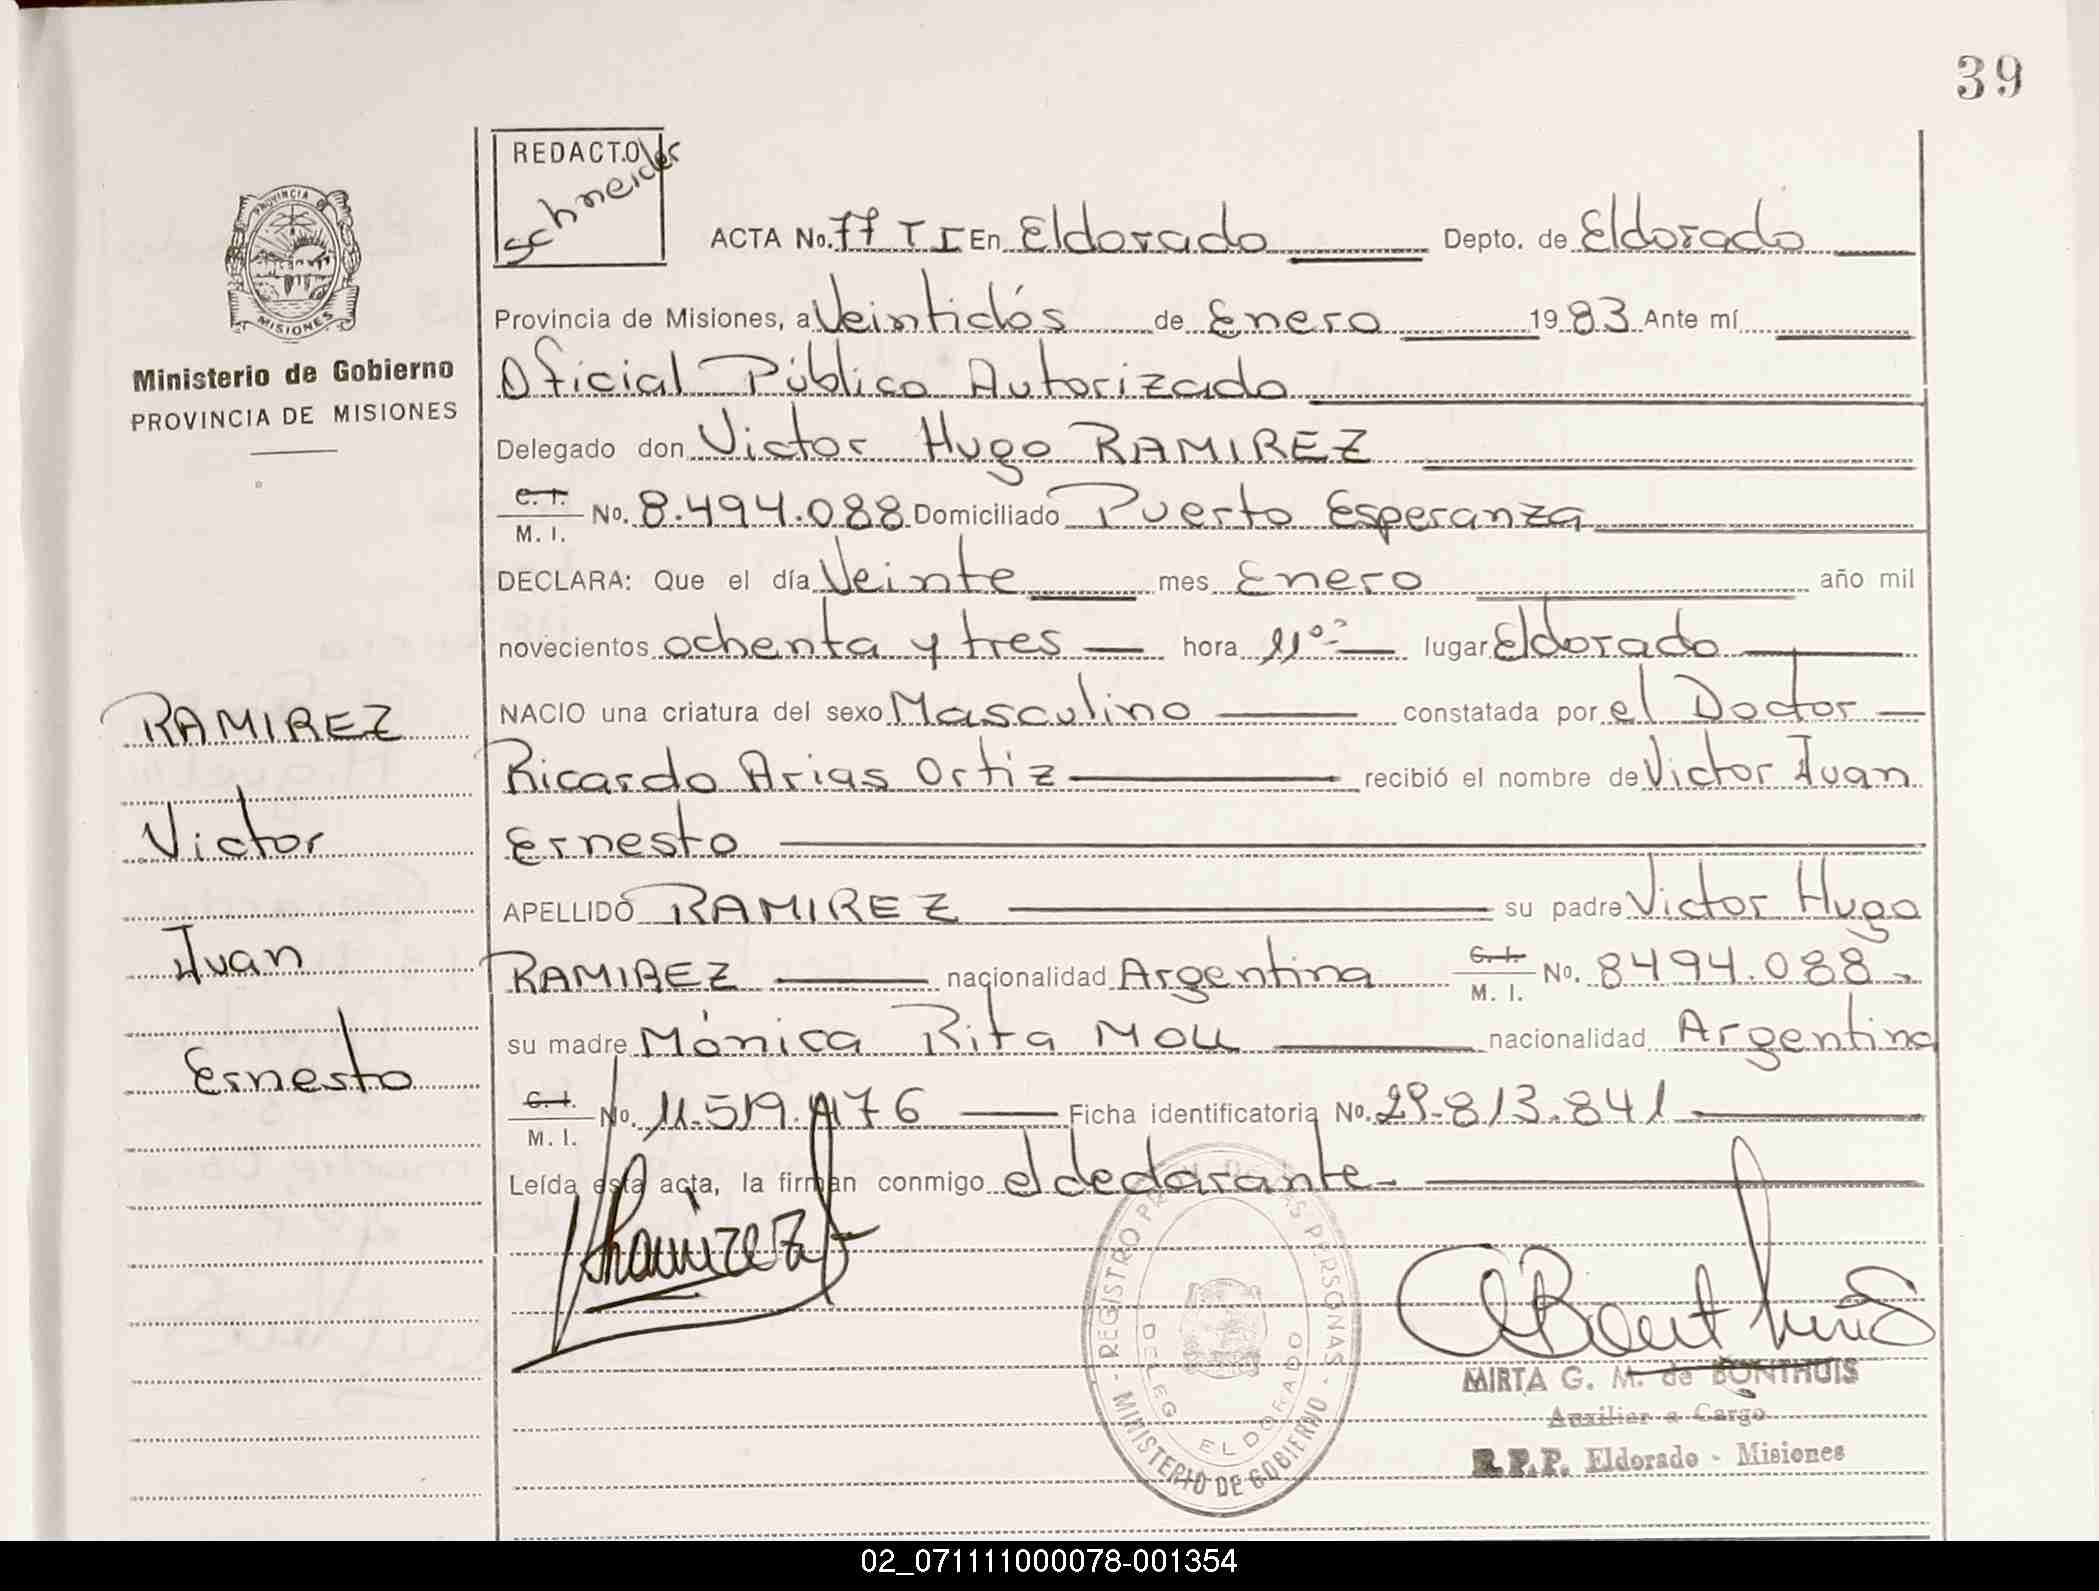 39
REDACTO
Schneider
PROVINCIA DE
MISIONES
Ministerio de Gobierno
PROVINCIA DE MISIONES
ACTA No. 77 T I En Eldorado Depto. de Eldorado
Provincia de Misiones, a Veintidós de Enero 1983 Ante mí
Oficial Público Autorizado
Delegado don Victor Hugo RAMIREZ
C. I.
M. I. No. 8.494.088 Domiciliado Puerto Esperanza
DECLARA: Que el día Veinte mes Enero año mil
novecientos ochenta y tres hora 11 lugar Eldorado
NACIO una criatura del sexo Masculino constatada por el Doctor
Ricardo Arias Ortiz recibió el nombre de Victor Juan
Ernesto
APELLIDO RAMIREZ su padre Victor Hugo
RAMIREZ nacionalidad Argentina C. I.
M. I. No. 8494.088
su madre Mónica Rita Moll nacionalidad Argentina
C. I.
M. I. No. 11.519.176 Ficha identificatoria No. 29.813.841
Leída esta acta, la firman conmigo el declarante
RAMIREZ
Victor
Juan
Ernesto
Ramirez
REGISTRO PERSONAS - MINISTERIO DE GOBIERNO -
DELEG ELDORADO
MIRTA G. M. de BONTHUIS
Auxiliar a Cargo
R.P.P. Eldorado - Misiones
02_071111000078-001354